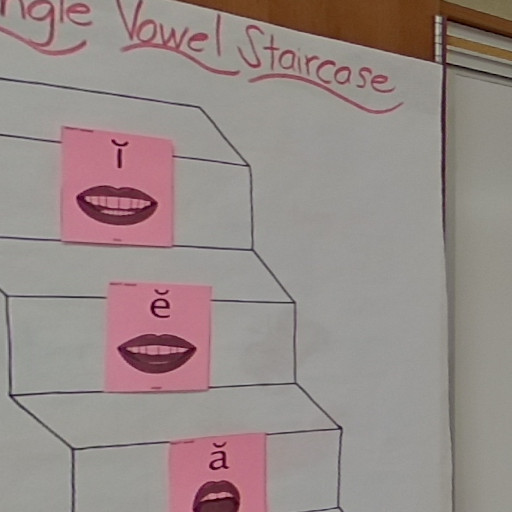 Vowel Staircase
ĭ
ĕ
ă